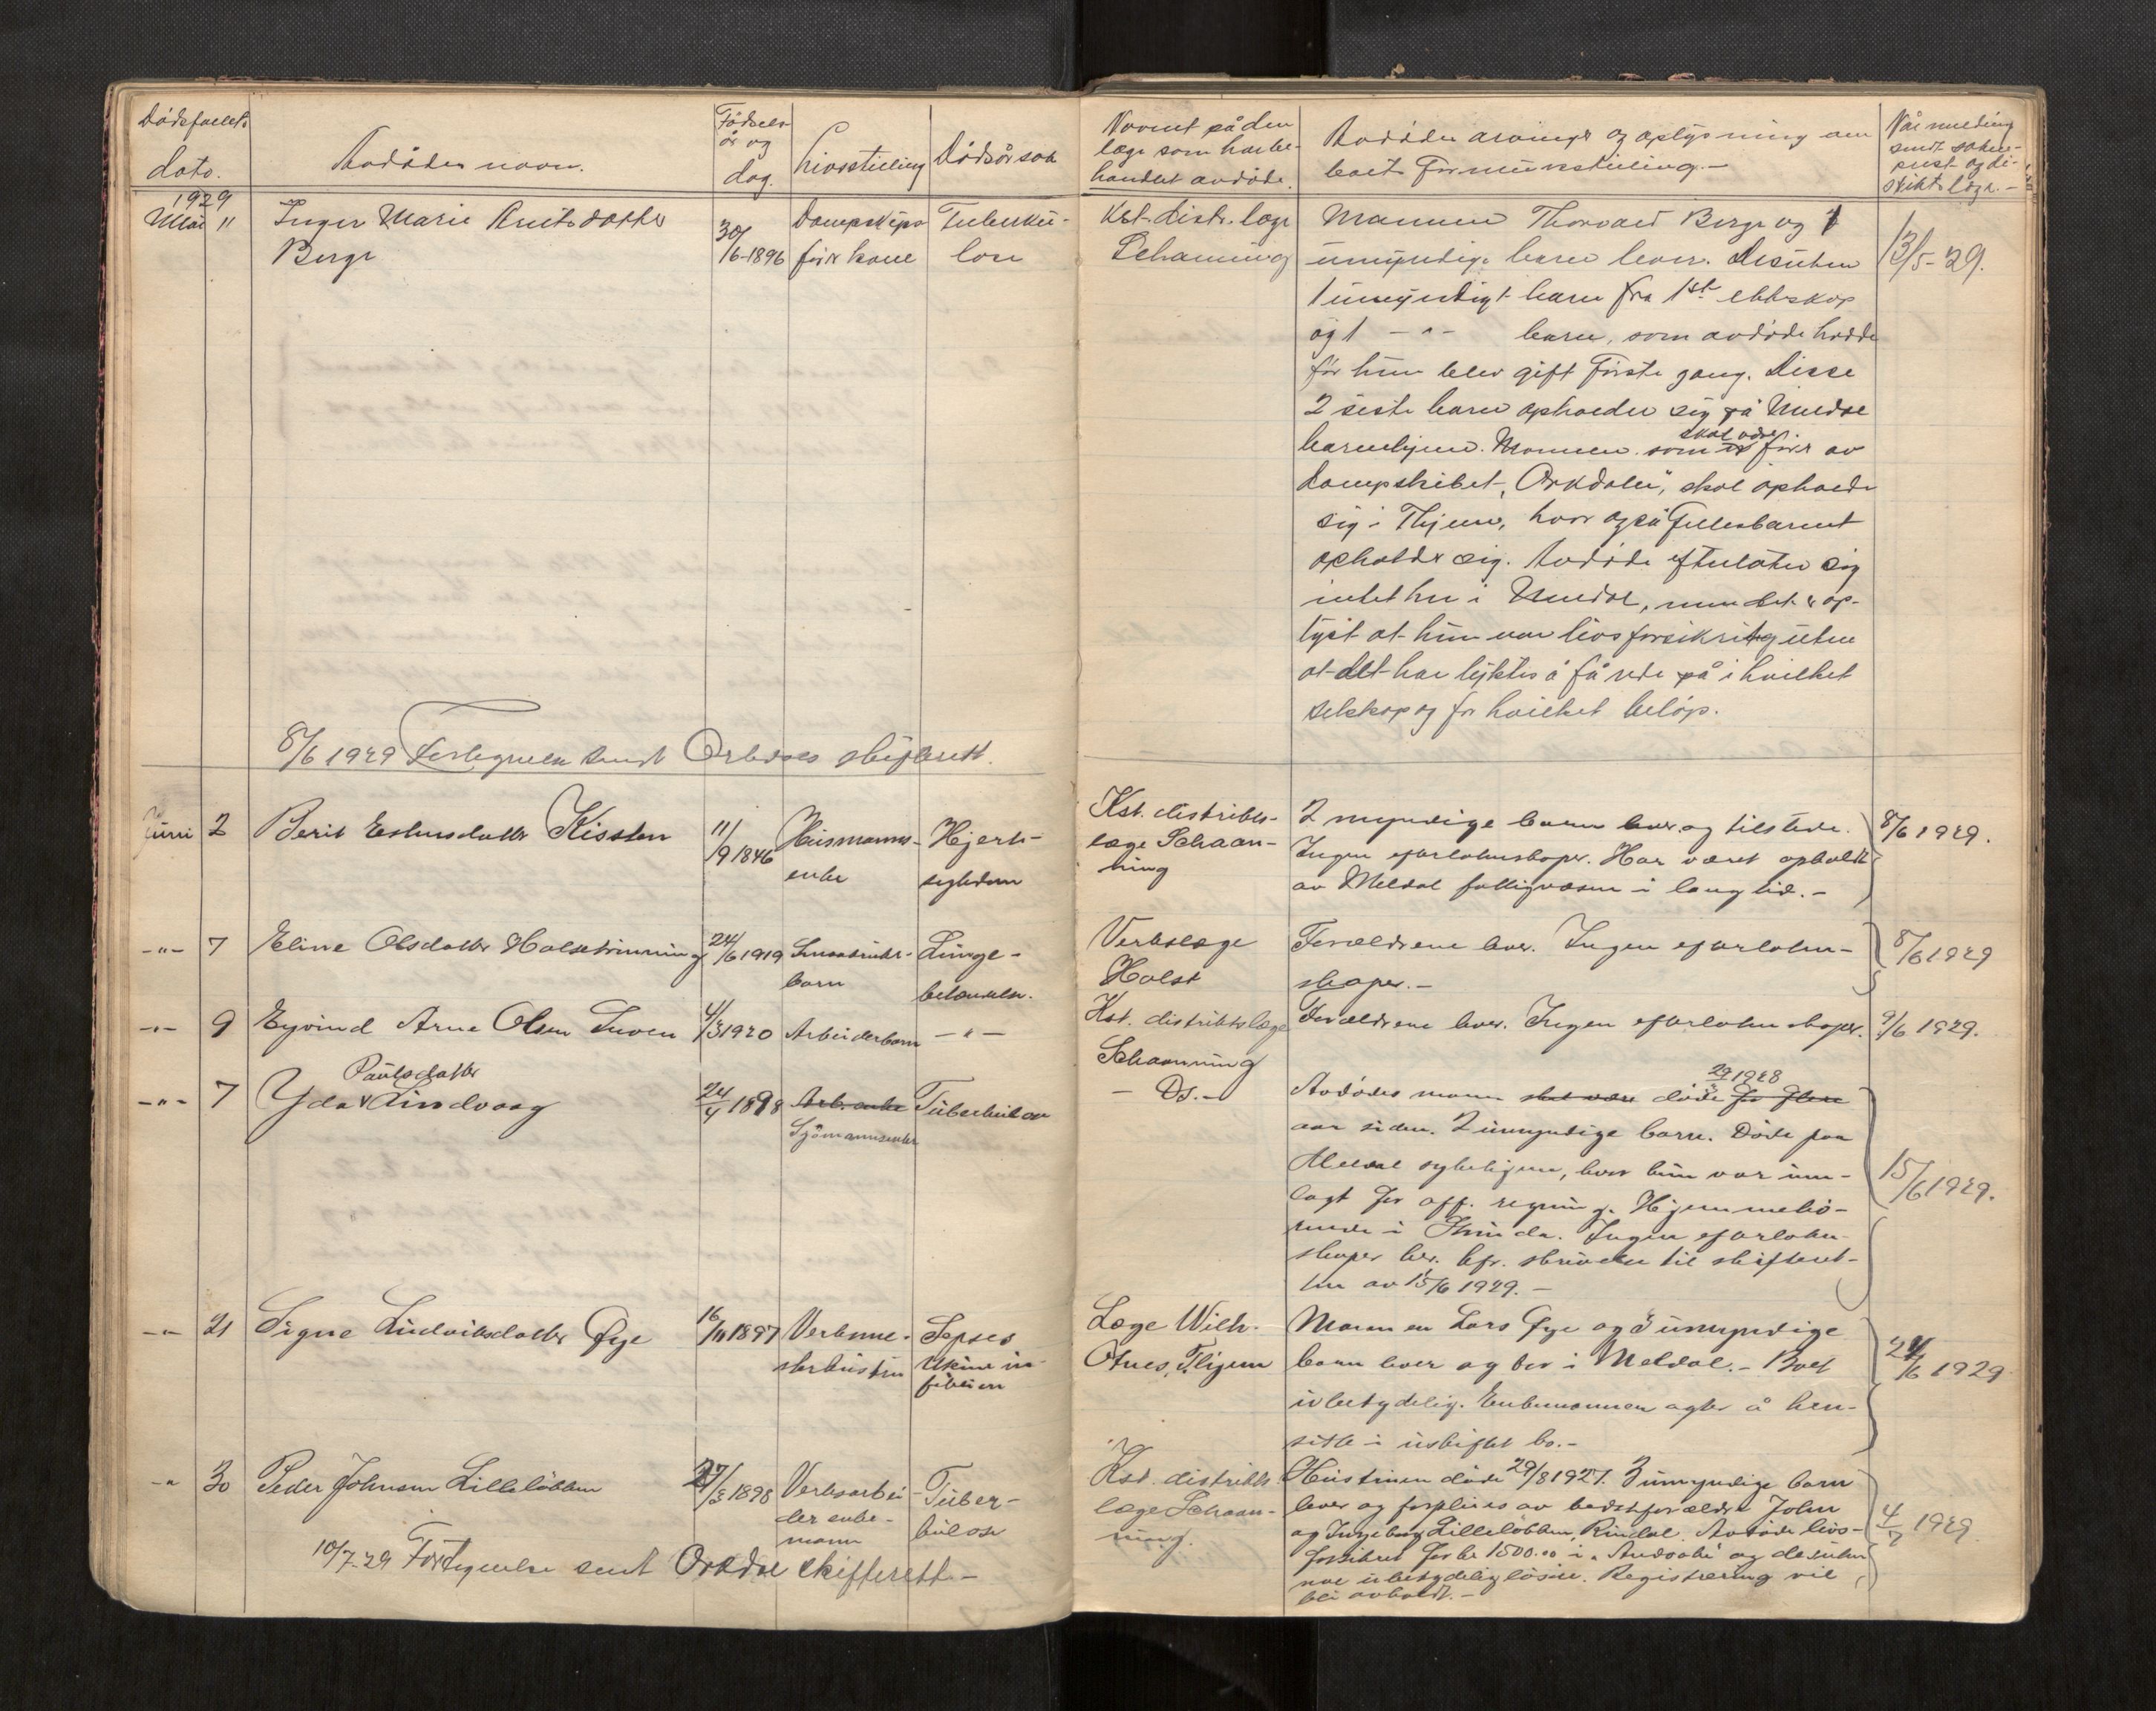 Dödsfallets
dato.
Avdödes navn.
Födsels
år og
dag.
Livsstilling
Dödsårsak
Navnet på den
læge som har be-
handlet avdöde.
Avdödes arvinger og oplysning om
boets formuesstilling.-
Når melding
sendt sokne-
prest og di-
striktslæge.-
1929
Mai 11
Inger Marie Knutsdatter
Berge
30/6-1896
Dampskips
förer kone
Tuberku-
lose
Kst. distr. læge
Schaaning
Mannen Thorvald Berge og 1
umyndige barn lever. Desuten
1 umyndigt barn fra 1st ektskap
og 1 -"- barn, som avdöde hadde
för hun blev gift förste gang. Disse
2 siste barn opholder sig på Meldal
barnehjem. Mannen som skal være förer av
Dampskibet „Orkdalen", skal opholde
sig i Thjem, hvor også Fellesbarnet
opholder sig. Avdöde efterlater sig
intet her i Meldal, men det er op-
lyst at hun var livsforsikrit uten
at det har lyktes å få rede på i hvilket
selskap og for hvilket belöp.
13/5-29.
8/6 1929 Fortegnelse sendt Orkdal skifterett.
Juni 2
Berit Estensdatter Kisslen
11/9 1846
Husmanns-
enke
Hjerte-
sykdom
Kst. distrikts-
læge Schaan-
ning
2 myndige barn lever og tilstede.
Ingen efterlatenskaper. Har været opholdt
av Meldal fattigvæsen i lang tid.-
8/6 1929.
-"- 7
Eline Olsdatter Halsetrinning
24/6 1919
Smaabruker-
barn
Lunge-
betændelse.
Verkslæge
Holst
Forældrene lever. Ingen efterlaten-
skaper.-
8/6 1929
-"- 9
Eyvind Arne Olsen Tuven
4/3 1920
Arbeiderbarn
-"-
Kst. distriktslæge
Schaanning
Forældrene lever. Ingen efterlatenskaper.
9/6 1929.
-"- 7
Paulsdatter
Yda Lindvaag
24/4 1898
Arb. enke
Sjömannsenke
Tuberkulose
- Ds.-
29/ 1928
Avdödes mann skal være döde for flere
aar siden. 2 umyndige barn. Döde paa
Meldal sykehjem, hvor hun var inn-
lagt for off. regning. Hjemmehö-
rende i Smöla. Ingen efterlaten-
skaper her. Kfr. skrivelse til skifteret-
ten av 15/6 1929.-
15/6 1929.
-"- 21
Signe Ludviksdatter Øye
16/11 1897
Verksme-
sterhustru
Sepsis
Uterin in-
feksion
Læge Wilh.
Otnes, Thjem
Mannen Lars Øye og 5 umyndige
barn lever og bor i Meldal.- Boet
ubetydelig. Enkemannen agter å hen-
sitte i uskiftet bo.-
24/6 1929
-" 30
Peder Johnsen Lilleløkken
27/3 1898
Verksarbei-
der enke-
mann
Tuber-
kulose
Kst. distrikts
læge Schaan-
ning.
Hustruen döde 29/8 1927. 3 umyndige barn
lever og forpleies av bedsteforældre John
og Ingeborg Lilleløkken, Rindal. Avdöde livs-
forsikret for kr 1500.00 i „Andvake" og desuten
noe ubetydelig lösöre. Registrering vil
bli avholdt.-
4/7 1929
10/7-29 Fortegnelse sendt Orkdal skifterett-